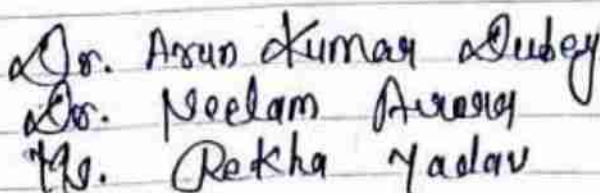 Dr. Arun Kumar Dubey
Dr. Neelam Arora
Dr. Rekha Yadav